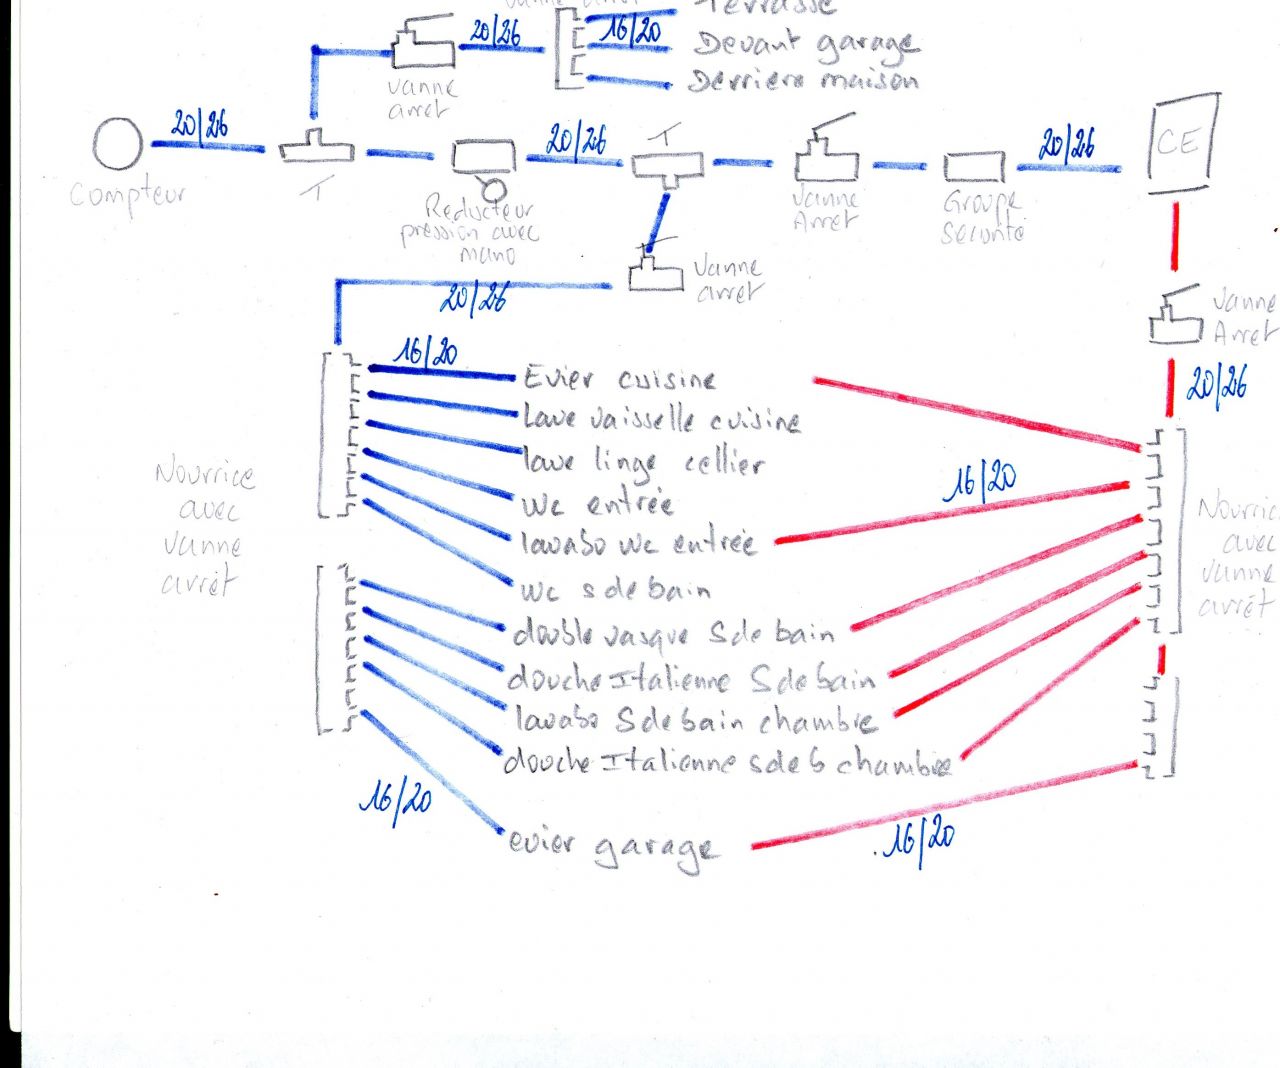 Terrasse
20/26
16/20
Devant garage
Derriere maison
Vanne
arret
20/26
20/26
T
20/26
CE
Compteur
T
Reducteur
pression avec
mano
Vanne
Arret
Groupe
Securité
Vanne
arret
20/26
Vanne
Arret
16/20
Evier cuisine
20/26
Lave vaisselle cuisine
lave linge cellier
16/20
Nourrice
avec
Vanne
arrêt
wc entrée
lavabo wc entrée
Nourric
avec
Vanne
arrêt
wc s de bain
double vasque S de bain
douche Italienne S de bain
lavabo S de bain chambre
douche Italienne s de b chambre
16/20
evier garage
16/20